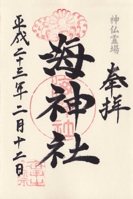 神仏霊場
奉拝
海神社
平成二十三年二月十二日